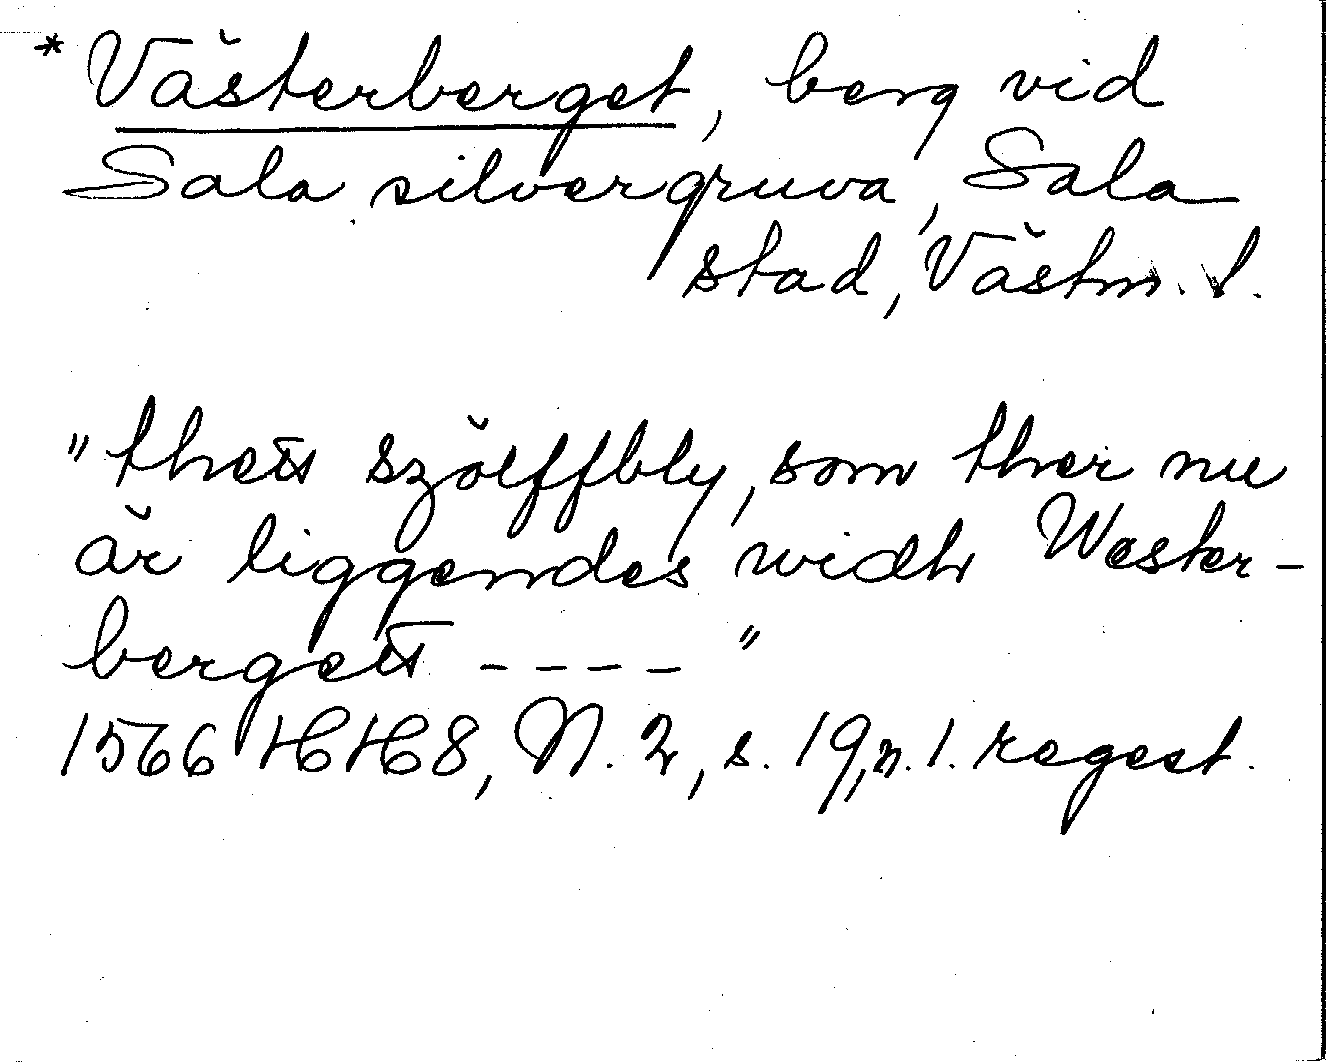 * Västerberget, berg vid
Sala silvergruva, Sala
stad, Västm. l.
"thett szölffbly, som ther nu
är liggendes widh Wester-
bergett ---- "
1566 HH8, N. 2, s. 19, n. 1. regest.